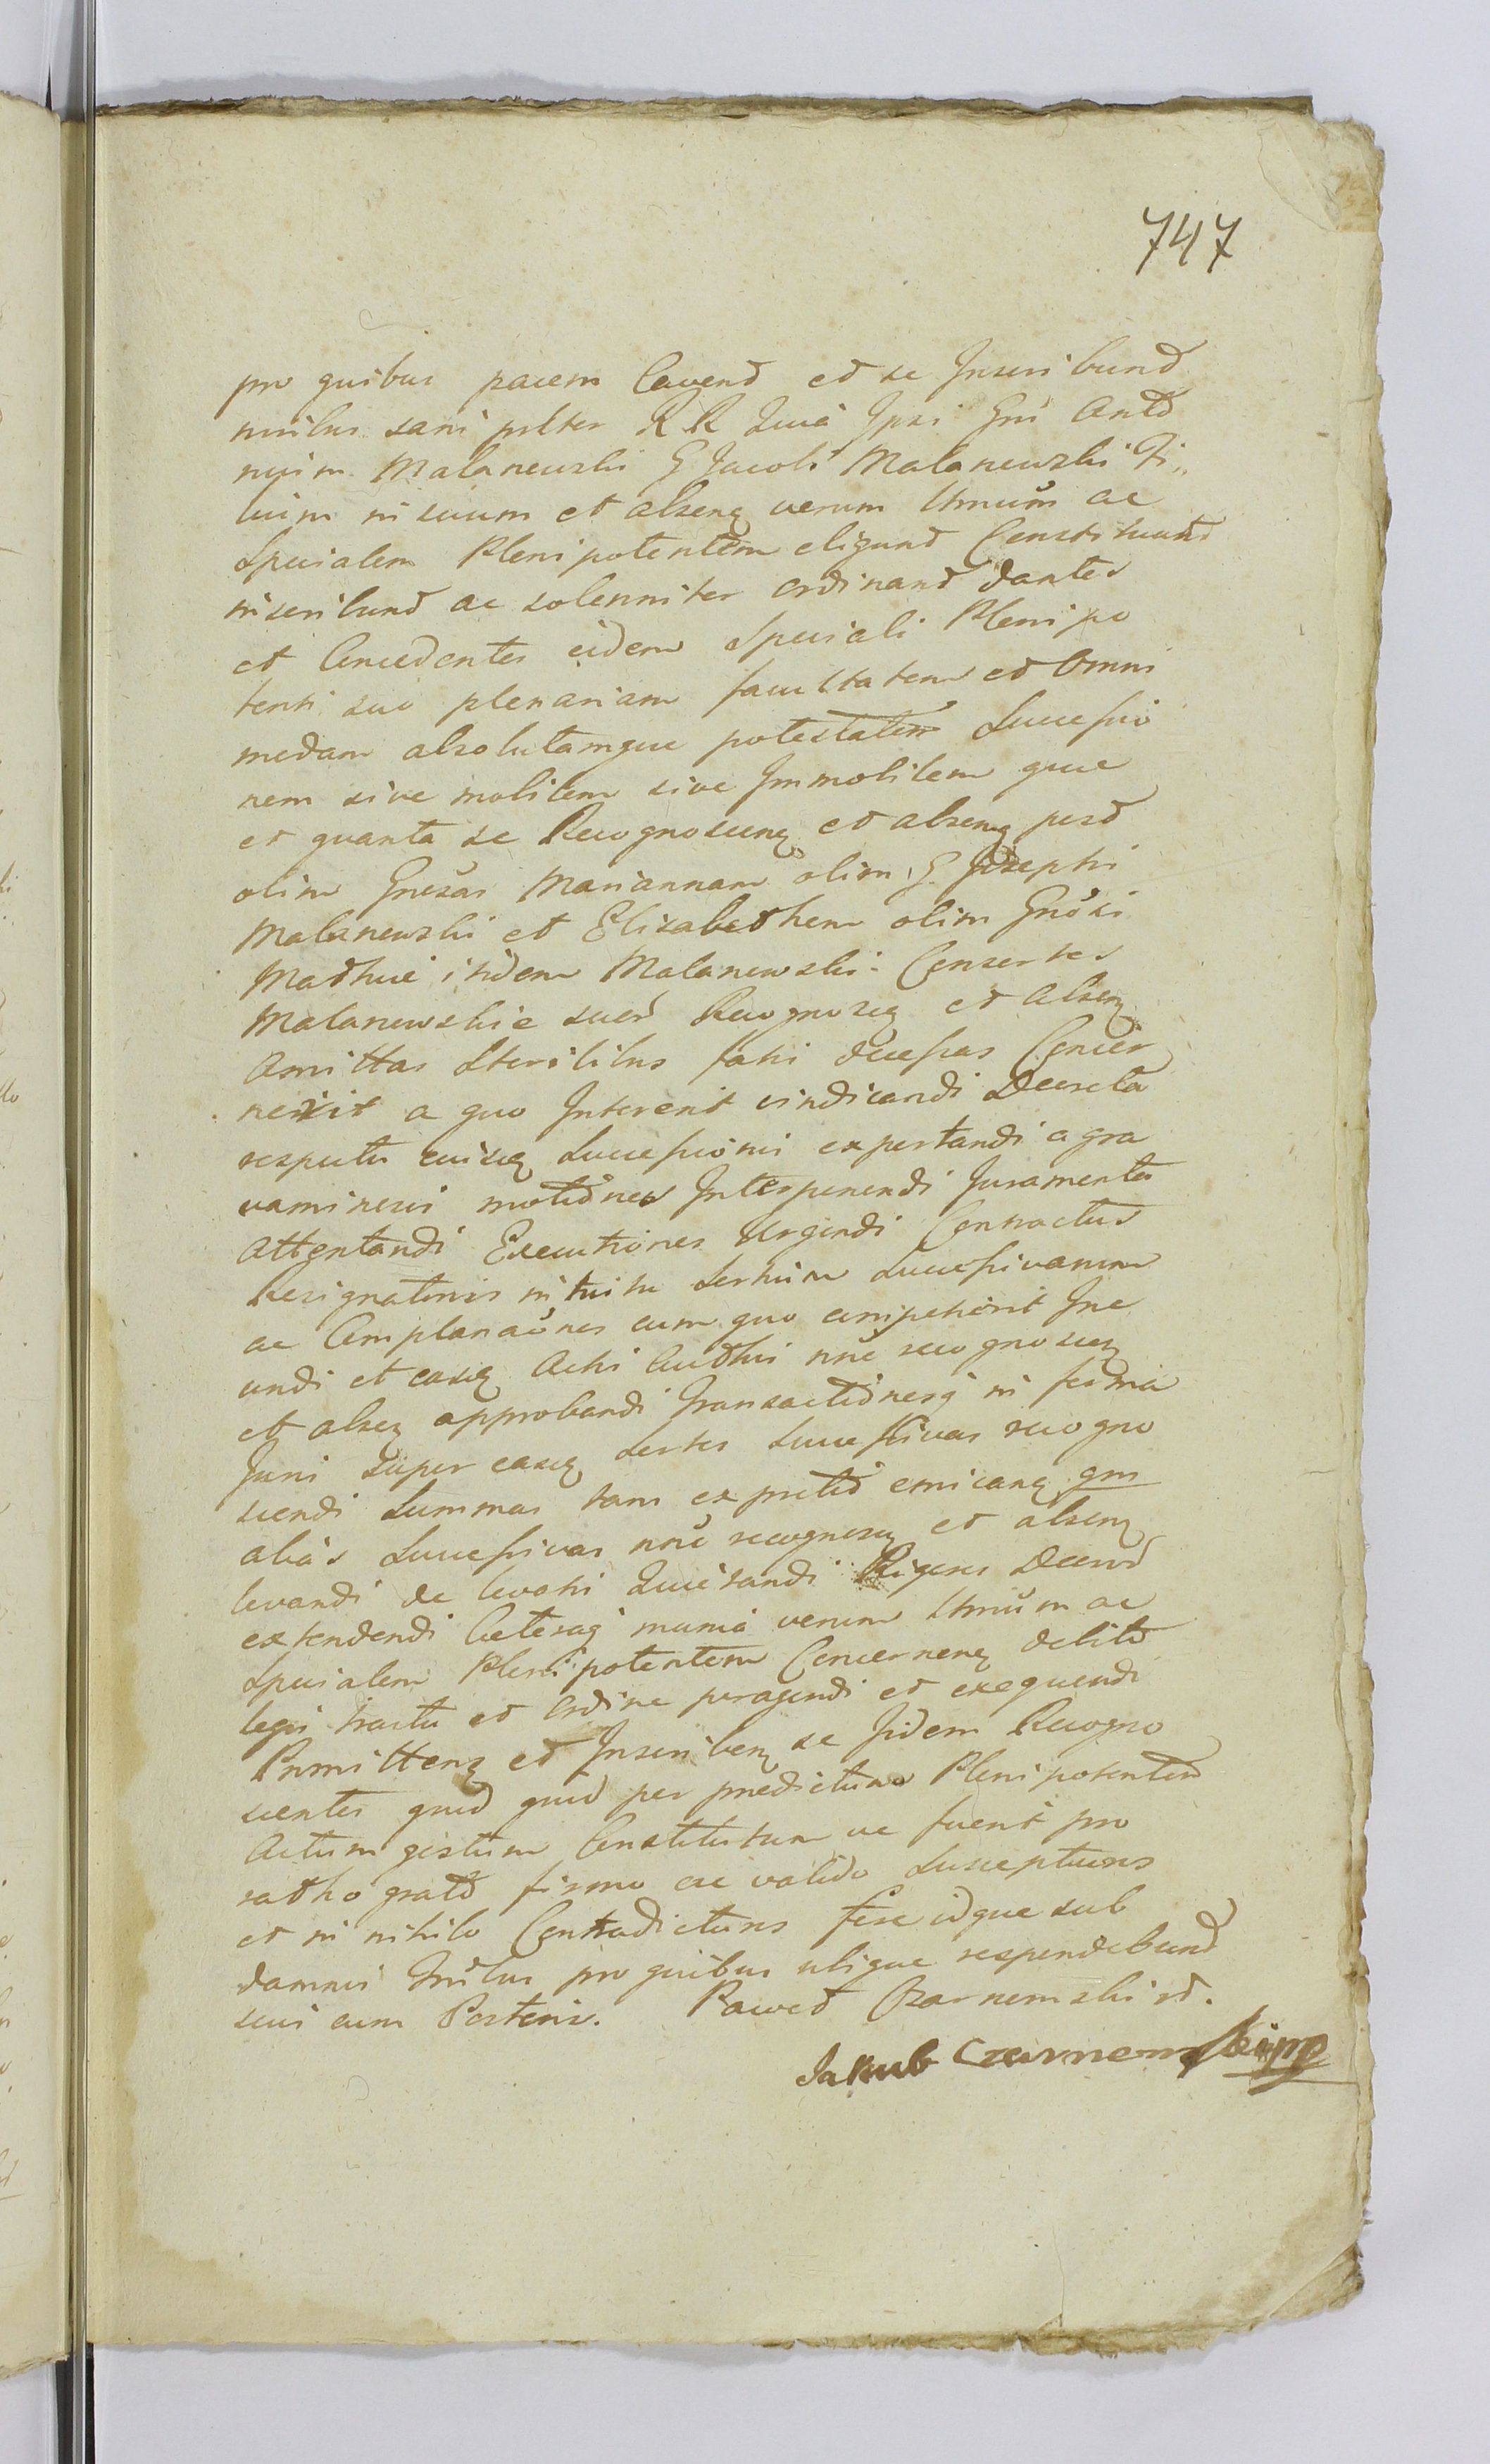 747
pro quibus pacem Cavend et se Inscribund
nisibus sani pitter R R Quia Ipsi Gnī Anto
nium Malanewski G Jacobi Malanewski Fi„
lium in suum et absenq verum ltmum ac
Specialem Plenipotentem eligund Constituund
inscribund ac solenniter ordinand dantes
et Concedentes eidem Speciali Plenipo
tenti suo plenariam facultatem et Omni
modam absolutamque potestatem Successio
nem sive mobilem sive Immobilem quae
et quanta se Recognoscenq et absenq post
olim Gnesas Mariannam olim G. Josephi
Malanewski et Elisabethem olim Gnosi
Mathei itidem Malanewski Consortes
Malanewskie suas Recognosq et absenq
Amittas Sterilibus fatis decessas Concer
nerit a quo Intererit vindicandi Decreta
respectu eiusq Successionis exportandi a gra
vaminesvi motiones Interponendi Juramenta
attentandi Executiones Urgendi Contractus
Resignationis intuitu Sortium Successivarum
ac Complanaōnes cum quo competierit Ine
undi et easq Acti Authi nnē recognoscq
et absq approbandi Transactionesq in forma
Juris super easq Sortes Successivas recogno
scendi Summas tam ex pretio emicanq qm
alias Successivas nnē recognosq et absenq
levandi de levatis Quietandi Rigores Decret
extendendi Ceteraq munia verum ltmum ac
Specialem Plenipotentem Concernenq debito
legis tractu et ordine peragendi et exequendi
Prmittenq et Inscribenq se Iidem Recogno
scentes quid quid per predictum Plenipotentem
Actum gestum Constitutum ve fuerit pro
ratho grato firmo ac valido Suscepturos
et in nihilo Contradicturos fore idque sub
damnis Trīlbus pro quibus ubique respondebund
suis cum Posteris. Paweł Czarnomski rd.
Jakub Czarnomski mp